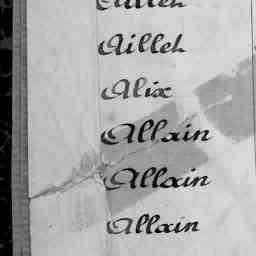 Aillet
Alix
Allain
Allain
Allain